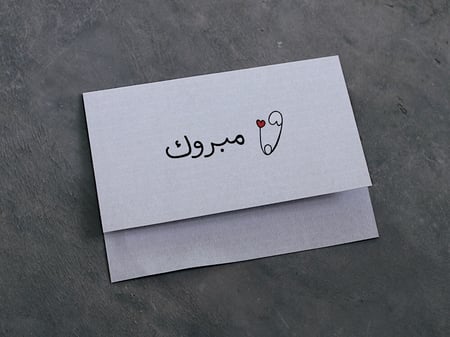 مبروك